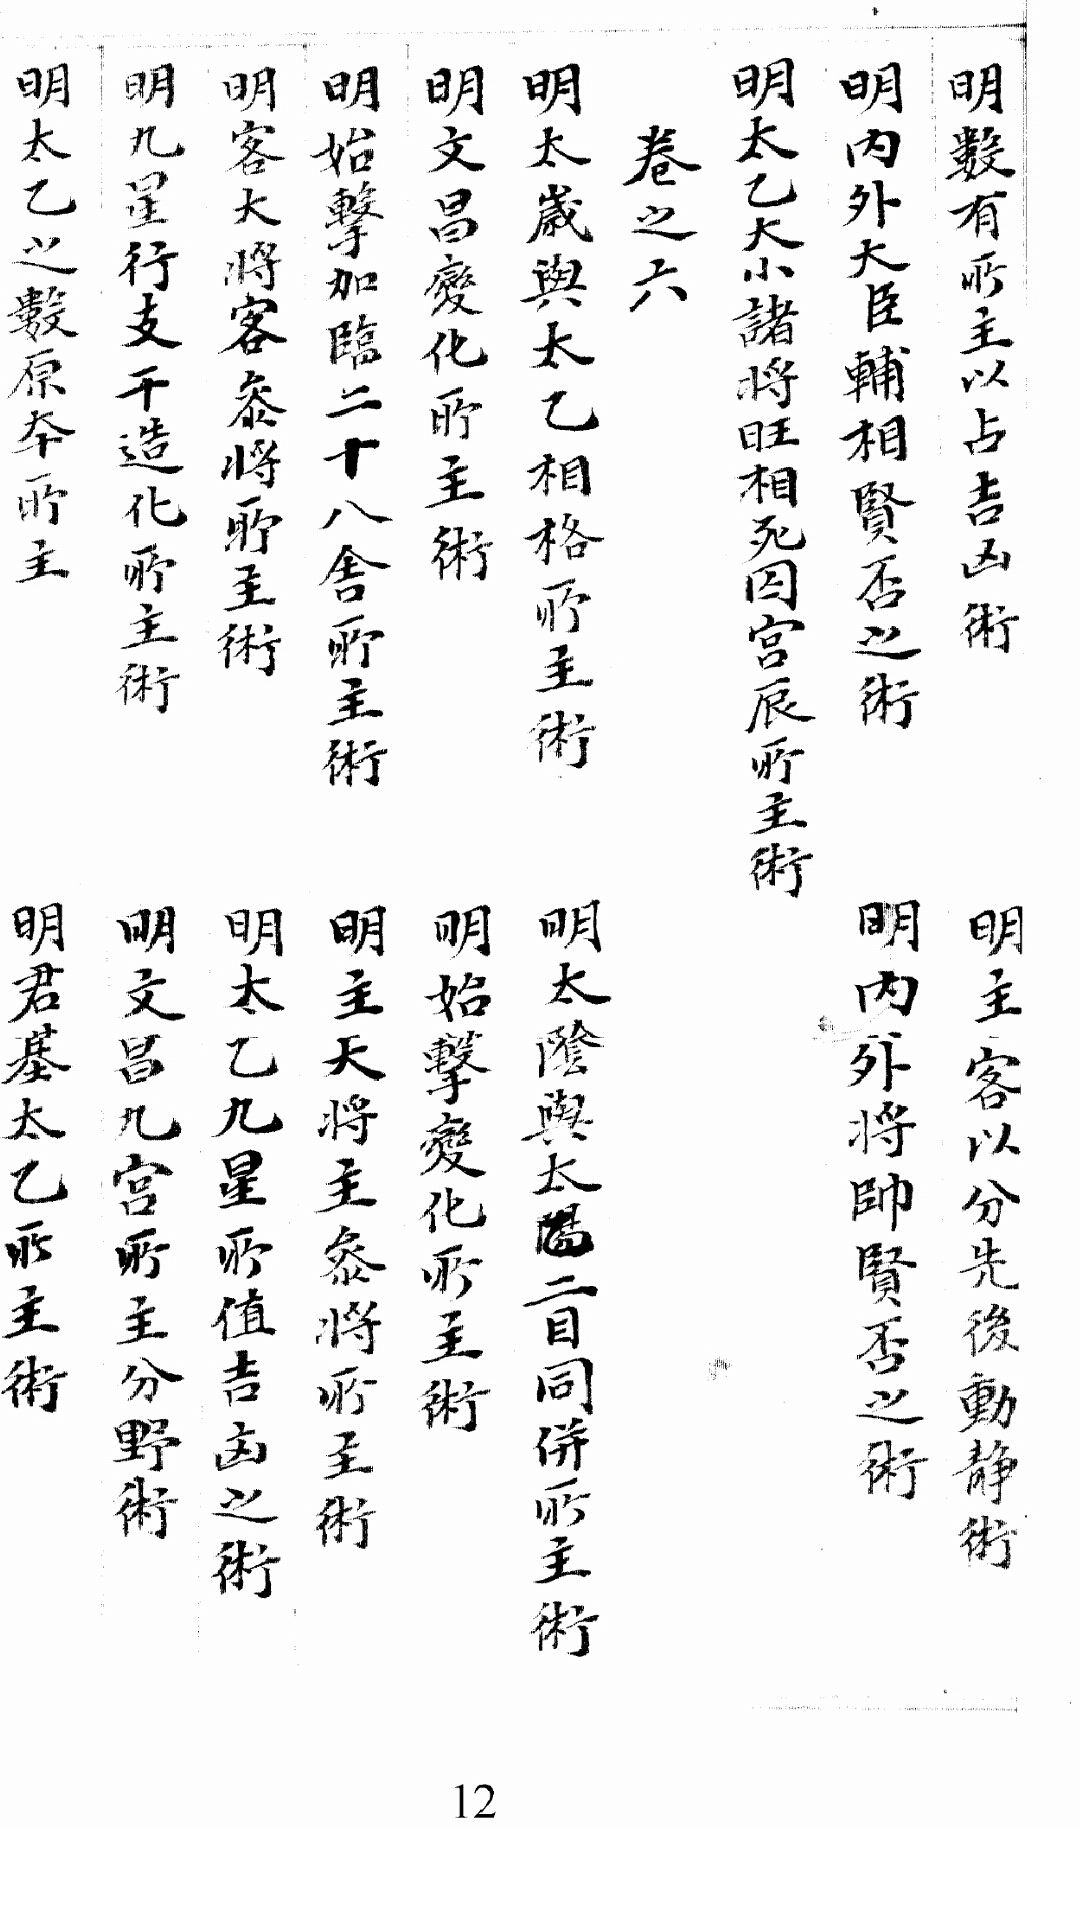 明數有所主以占吉凶術　明主客以分先後動静術
明内外大臣輔相賢否之術　明内外将帥賢否之術
明太乙大小諸将旺相死囚宫辰所主術
卷之六
明太歳與太乙相格所主術　明太陰與太陽二目同併所主術
明文昌變化所主術　明始擊變化所主術
明始擊加臨二十八舎所主術　明主大将主叅将所主術
明客大将客叅将所主術　明太乙九星所值吉凶之術
明九星行支干造化所主術　明文昌九宫所主分野術
明太乙之數原夲所主　明君基太乙所主術
12